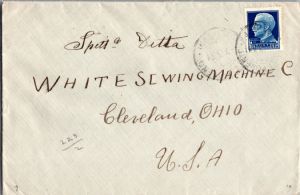 Spett.a Ditta
WHITE SEWING MACHINE C
Cleveland, OHIO
U.S.A